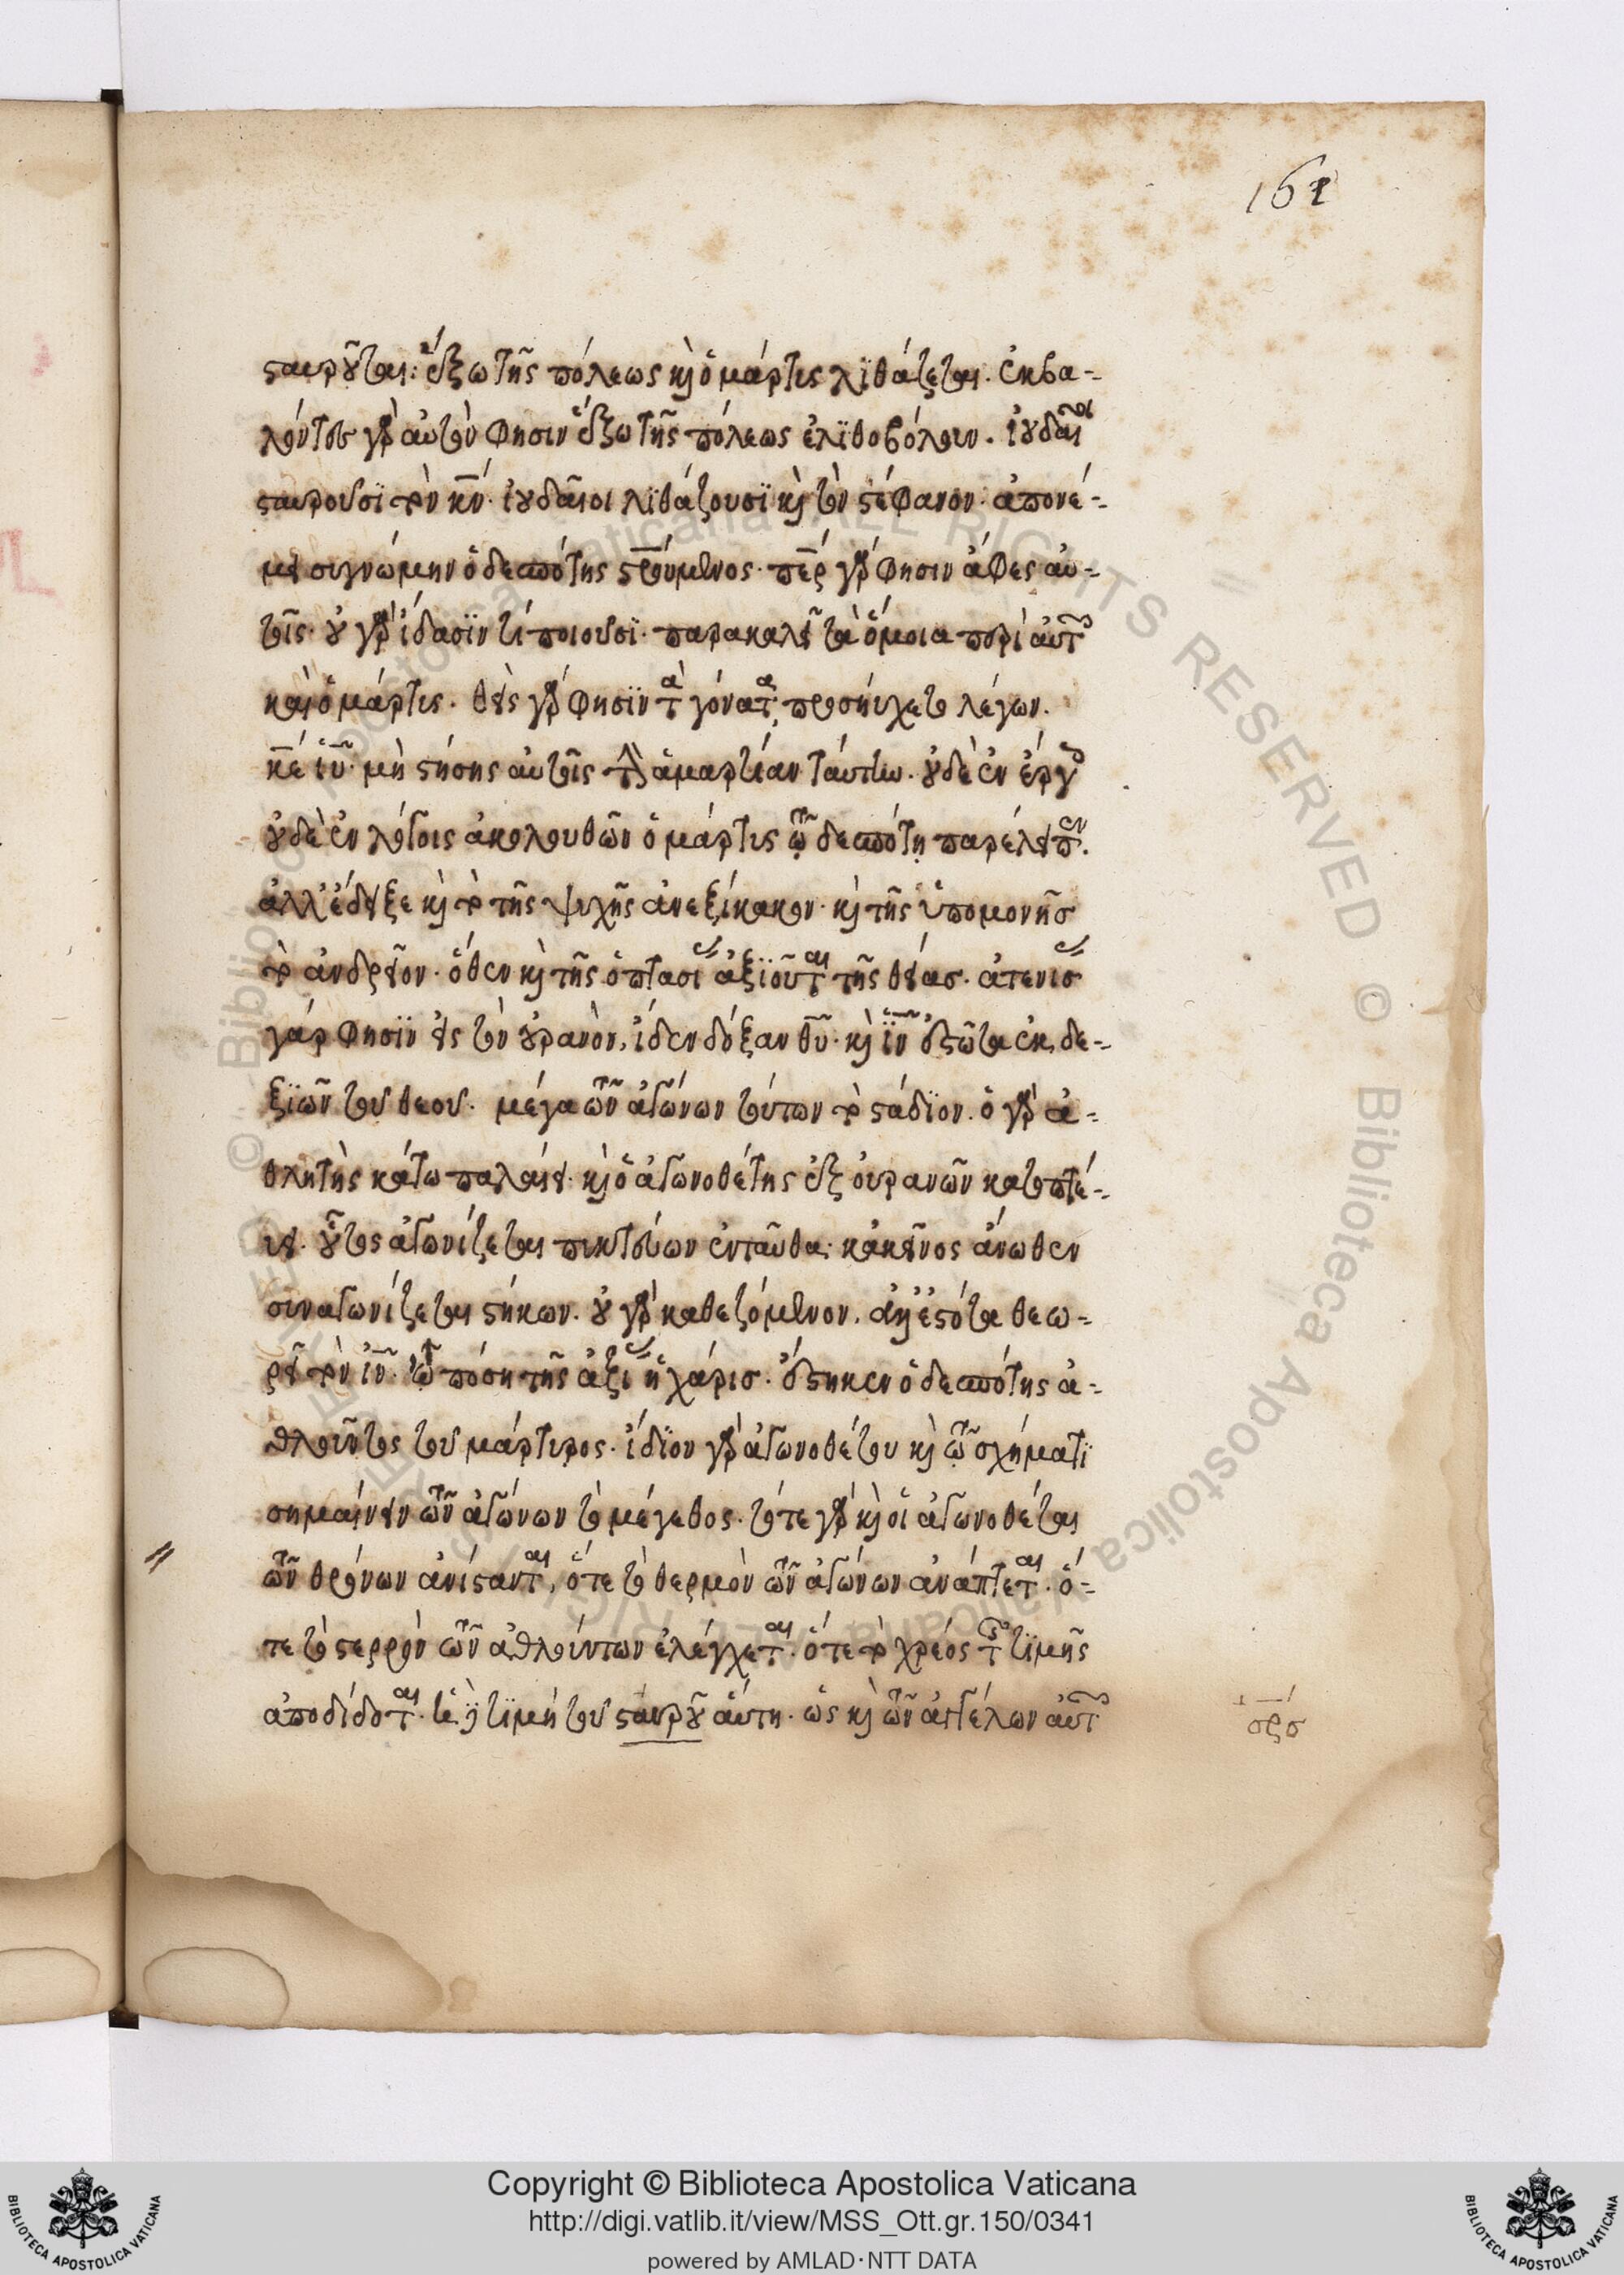 162
σταυροῦται· ἔξω τῆς πόλεως κὶ ὁ μάρτυς λϊθάζεται. ἐκβα-
λόντες γὰρ αὐτὸν φησιν ἔξω τῆς πόλεως ἐλϊθοβόλουν. ἰουδαῖοι
σταυροῦσϊ τὸν κν. ἰουδαῖοι λϊθάζουσϊ κὶ τὸν στέφανον. ἀπονέ-
μει συγνώμην ὁ δεσπότης στρούμενος. περ γάρ φησιν ἄφες αὐ-
τοῖς. οὐ γὰρ ἴδασϊν τί ποιοῦσϊ. παρακαλεῖ τὰ ὅμοια περὶ αὐτῶν
καὶ ὁ μάρτυς. θεὶς γάρ φησϊν τὰ γόνατα, προσηύχετο λέγων.
κε ιυ. μὴ στήσης αὐτοῖς τὴν ἁμαρτίαν ταύτην. οὐδὲ ἐν ἔργοις
οὐδὲ ἐν λόγοις ἀκολουθῶν ὁ μάρτυς τῷ δεσπότῃ παρέλειπεν.
ἀλλ' ἔδειξε κὶ τὸ τῆς ψυχῆς ἀνεξίκακον. κὶ τῆς ὑπομονῆς
τὸ ἀνδρεῖον. ὅθεν κὶ τῆς ὀπτασίας ἀξϊοῦται τῆς θείας. ἀτενίσας
γάρ φησϊν εἰς τὸν οὐρανὸν, ἴδεν δόξαν θυ. κὶ ϊν ἑστῶτα ἐκ δε-
ξϊῶν τοῦ θεοῦ. μέγα τῶν ἀγώνων τούτων τὸ στάδϊον. ὁ γὰρ ἀ-
θλητὴς κάτω παλαίει. κὶ ὁ ἀγωνοθέτης ἐξ οὐρανῶν κατοπτέ-
υει. οὗτος ἀγωνίζεται πυκτεύων ἐνταῦθα· κἀκεῖνος ἄνωθεν
συναγωνίζεται στήκων. οὐ γὰρ καθεζόμενον, ἀλλ' ἑστότα θεω-
ρεῖ τὸν ιν. ὢ πόση τῆς ἀξίας ἡ χάρις. ἕστηκεν ὁ δεσπότης ἀ-
θλοῦντος τοῦ μάρτυρος. ἴδϊον γὰρ ἀγωνοθέτου κὶ τῷ σχήματϊ
σημαίνειν τῶν ἀγώνων τὸ μέγεθος. τότε γὰρ κὶ οἱ ἀγωνοθέται
τῶν θρόνων ἀνίστανται, ὅτε τὸ θερμὸν τῶν ἀγώνων ἀνάπτεται. ὅ-
τε τὸ στερρὸν τῶν ἀθλούντων ἐλέγχεται. ὅτε τὸ χρέος τῆς τϊμῆς
ἀποδίδοται. τϊμὴ τοῦ σταυροῦ αὕτη. ὡς κὶ τῶν ἀγγέλων αὐτῶν
Copyright © Biblioteca Apostolica Vaticana
http://digi.vatlib.it/view/MSS_Ott.gr.150/0341
powered by AMLAD·NTT DATA